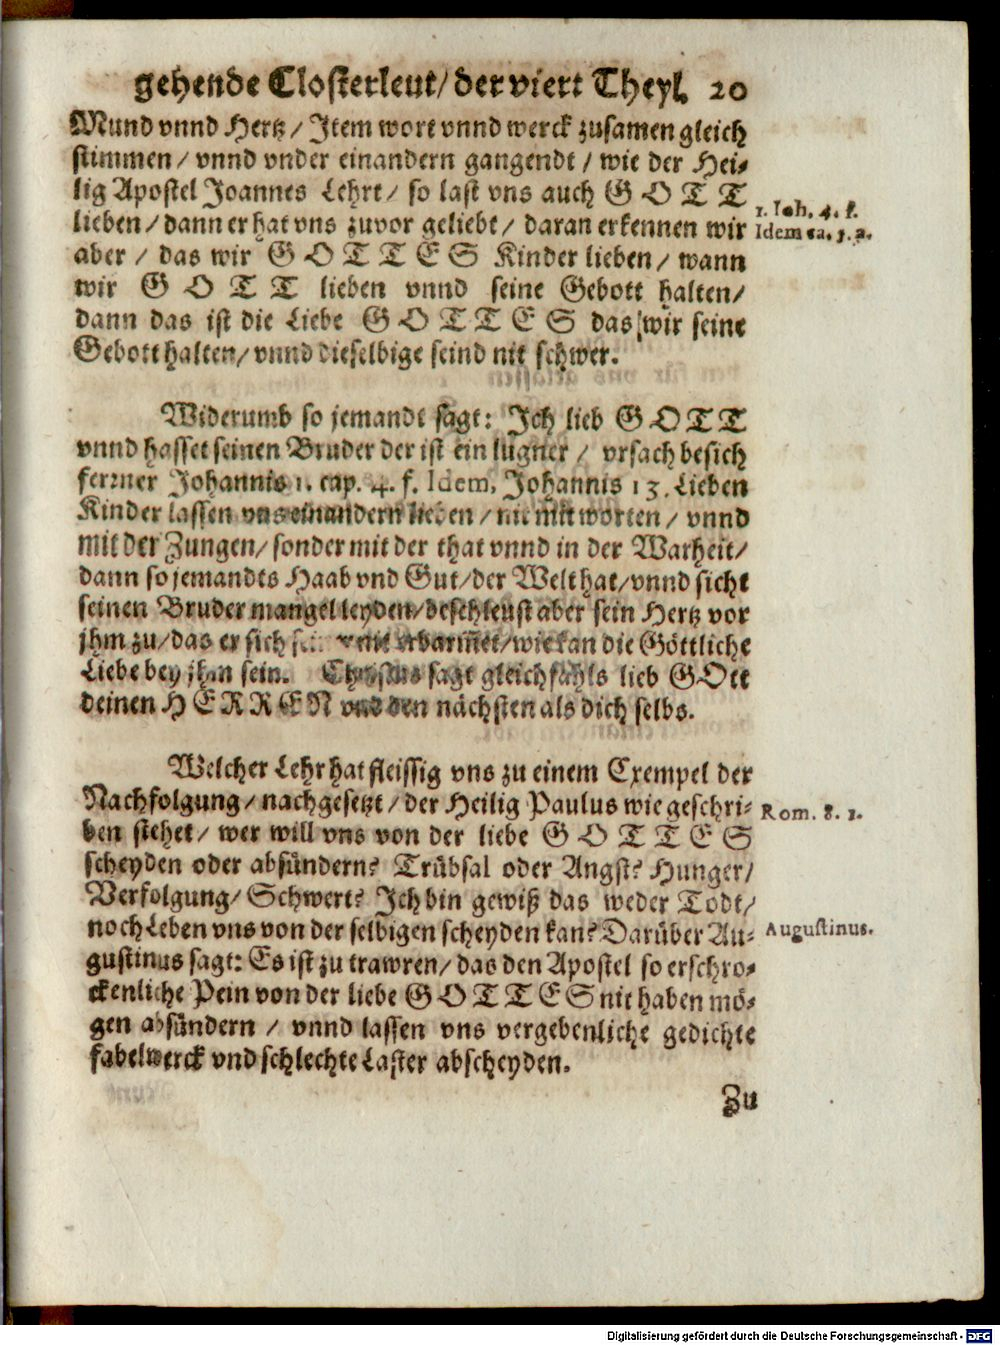 gehende Closterleut/ der viert Theyl. 20
Mund vnnd Hertz / Item wort vnnd werck zusamen gleich
stimmen / vnnd vnder einandern gangendt / wie der Hei-
lig Apostel Joannes Lehrt / so last vns auch GOTT
lieben / dann er hat vns zuvor geliebt / daran erkennen wir
aber / das wir GOTTES Kinder lieben / wann
wir GOTT lieben vnnd seine Gebott halten/
dann das ist die Liebe GOTTES das wir seine
Gebott halten/ vnnd dieselbige seind nit schwer.
1. Joh. 4. f.
Idem ca. 5. a.
Widerumb so jemandt sagt: Ich lieb GOTT
vnnd hasset seinen Bruder der ist ein lugner / vrsach besich
ferrner Johannis 1. cap. 4. f. Idem, Johannis 13. Lieben
Kinder lassen vns einandern lieben / nit mit worten / vnnd
mit der Zungen/ sonder mit der that vnnd in der Warheit/
dann so jemandts Haab vnd Gut/ der Welt hat/ vnnd sicht
seinen Bruder mangel leyden/ beschleust aber sein Hertz vor
jhm zu/ das er sich nit erbarmet/ wie kan die Göttliche
Liebe bey jhm sein. Christus sagt gleichfahls lieb GOtt
deinen HERREN vnd den nächsten als dich selbs.
Welcher Lehr hat fleissig vns zu einem Exempel der
Nachfolgung/ nachgesetzt/ der Heilig Paulus wie geschri-
ben stehet/ wer will vns von der liebe GOTTES
scheyden oder absündern? Trübsal oder Angst? Hunger/
Verfolgung/ Schwert? Ich bin gewiß das weder Todt/
noch Leben vns von der selbigen scheyden kan? Darüber Au-
gustinus sagt: Es ist zu trawren/ das den Apostel so erschro-
ckenliche Pein von der liebe GOTTES nit haben mö-
gen absündern / vnnd lassen vns vergebenliche gedichte
fabelwerck vnd schlechte Laster abscheyden.
Rom. 8. 1.
Augustinus.
Zu
Digitalisierung gefördert durch die Deutsche Forschungsgemeinschaft - DFG